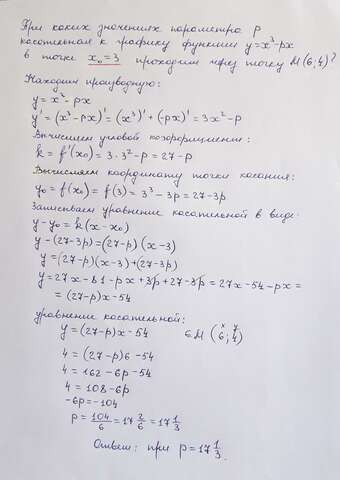 При каких значениях параметра p
касательная к графику функции y=x³-px
в точке x₀=3 проходит через точку M(6;4)?
Находим производную:
y=x³-px
y'=(x³-px)'=(x³)'+(-px)'=3x²-p
Вычисляем угловой коэффициент:
k=f'(x₀)=3·3²-p=27-p
Вычисляем координату точки касания:
y₀=f(x₀)=f(3)=3³-3p=27-3p
Записываем уравнение касательной в виде:
y-y₀=k(x-x₀)
y-(27-3p)=(27-p)(x-3)
y=(27-p)(x-3)+(27-3p)
y=27x-81-px+3p+27-3p=27x-54-px=
=(27-p)x-54
уравнение касательной:
y=(27-p)x-54 ∈M (6;4)
x y
4=(27-p)6-54
4=162-6p-54
4=108-6p
-6p=-104
p=104/6=17 2/6=17 1/3
Ответ: при p=17 1/3.